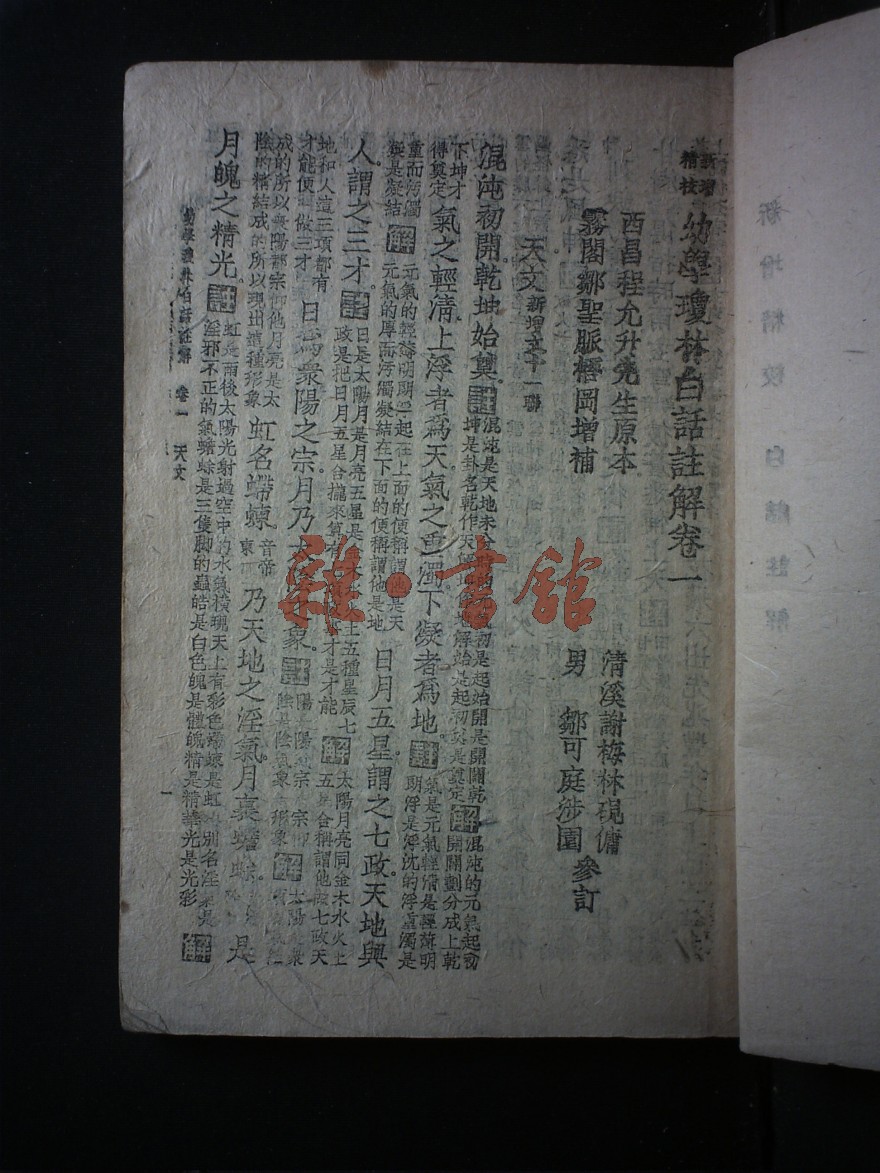 新增精校幼學瓊林白話註解卷一
西昌程允升先生原本
霧閣鄒聖脈梧岡增補
清溪謝梅林硯傭
男 鄒可庭涉園
參訂
天文 新增文十一聯
混沌初開乾坤始奠註混沌是天地未分時的氣初是起始開是開闢乾坤是卦名乾作天坤作地解始是起初奠是奠定解混沌的元氣起初開闢劃分成上乾
下坤才得奠定氣之輕清上浮者為天氣之重濁下凝者為地註氣是元氣輕清是輕薄明朗浮是浮沈的浮重濁是
重而污濁凝是凝結解元氣的輕薄明朗浮起在上面的便稱謂他是天元氣的厚而污濁凝結在下面的便稱謂他是地日月五星謂之七政天地與
人謂之三才註日是太陽月是月亮五星是金木水火土五種星辰七政是把日月五星合攏來算有七個才是才能解太陽月亮同金木水火土五星合稱謂他做七政天
地和人這三項都有才能便叫做三才日為衆陽之宗月乃太陰之象註陽是陽氣宗是宗仰陰是陰氣象是形象解太陽是衆
成的所以衆陽都宗仰他月亮是太陰的精結成的所以現出這種形象虹名螮蝀音帝東乃天地之淫氣月裏蟾蜍是
月魄之精光註虹是雨後太陽光射過空中的水氣橫現天上有彩色螮蝀是虹的別名淫氣是淫邪不正的氣蟾蜍是三隻脚的蟲皓是白色魄是體魄精是精華光是光彩解
幼學瓊林白話註解 卷一 天文
一
新增精校白話註解
雜·書館